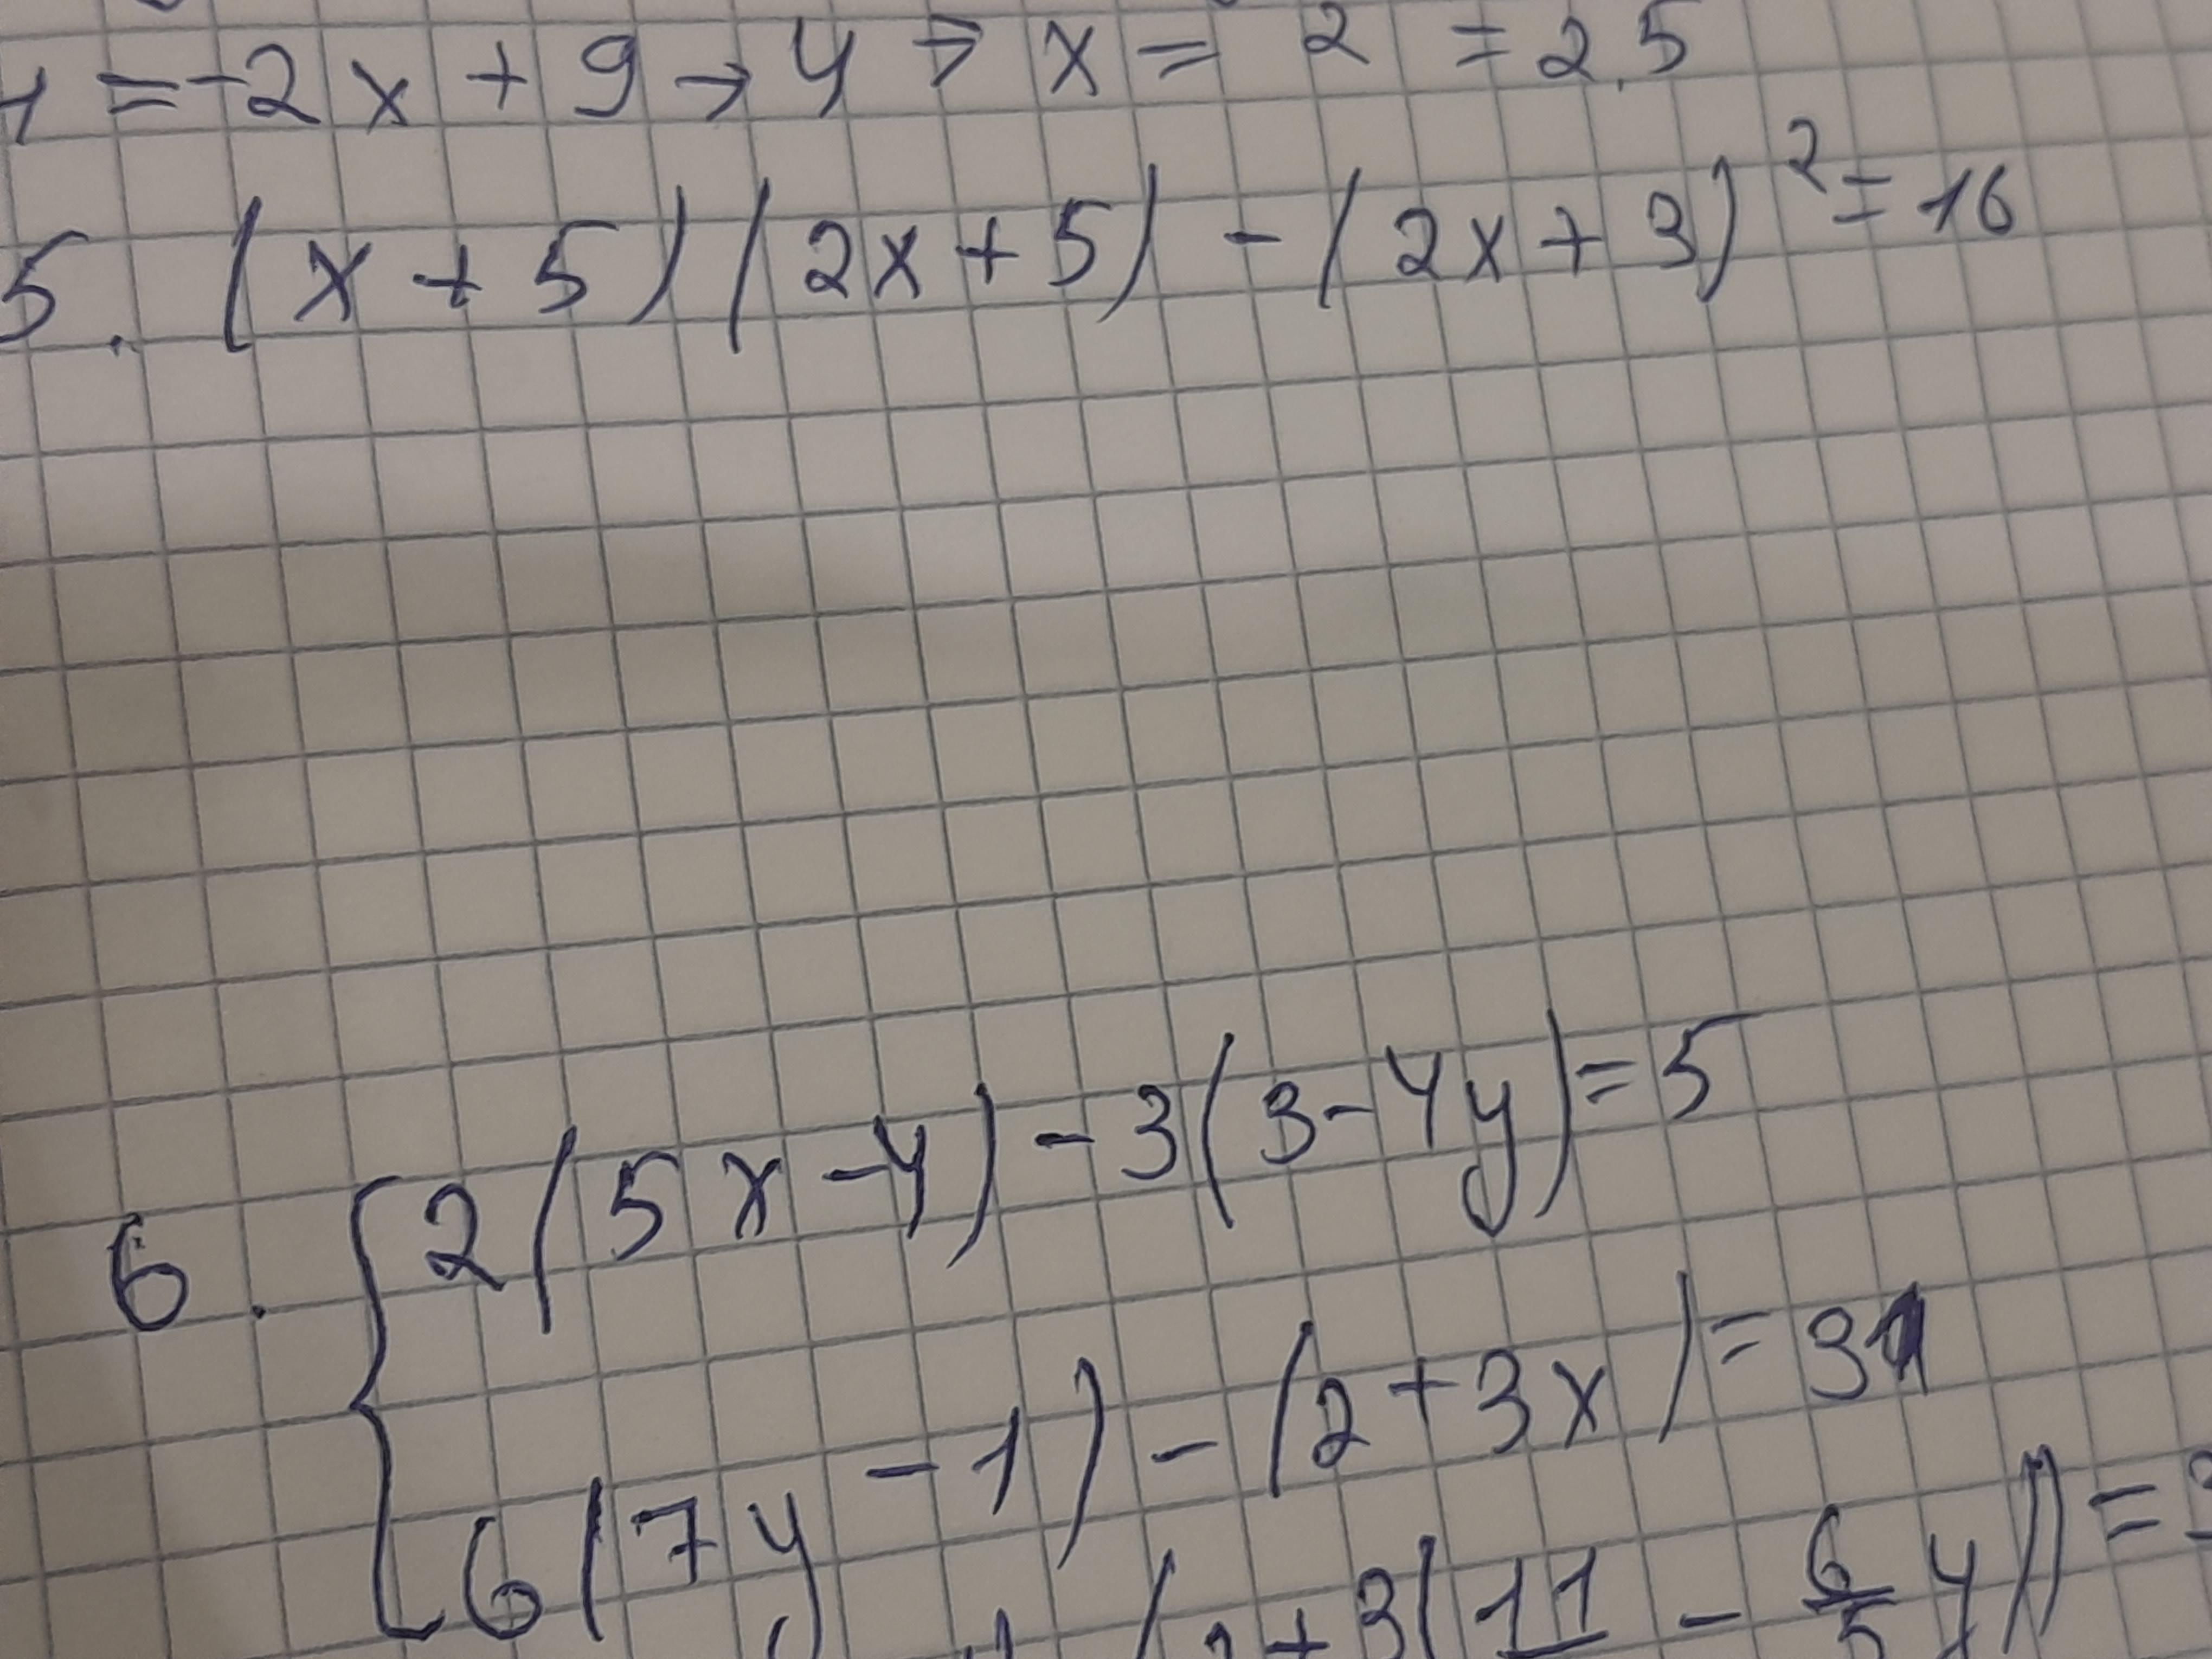 = -2x + 9 → y → x = 2 = 2,5
5. (x + 5)(2x + 5) - (2x + 3)² = 16
6. { 2(5x - y) - 3(3 - 4y) = 5
6(7y - 1) - (2 + 3x) = 31
+ 3(11 - 6/5 y)) =